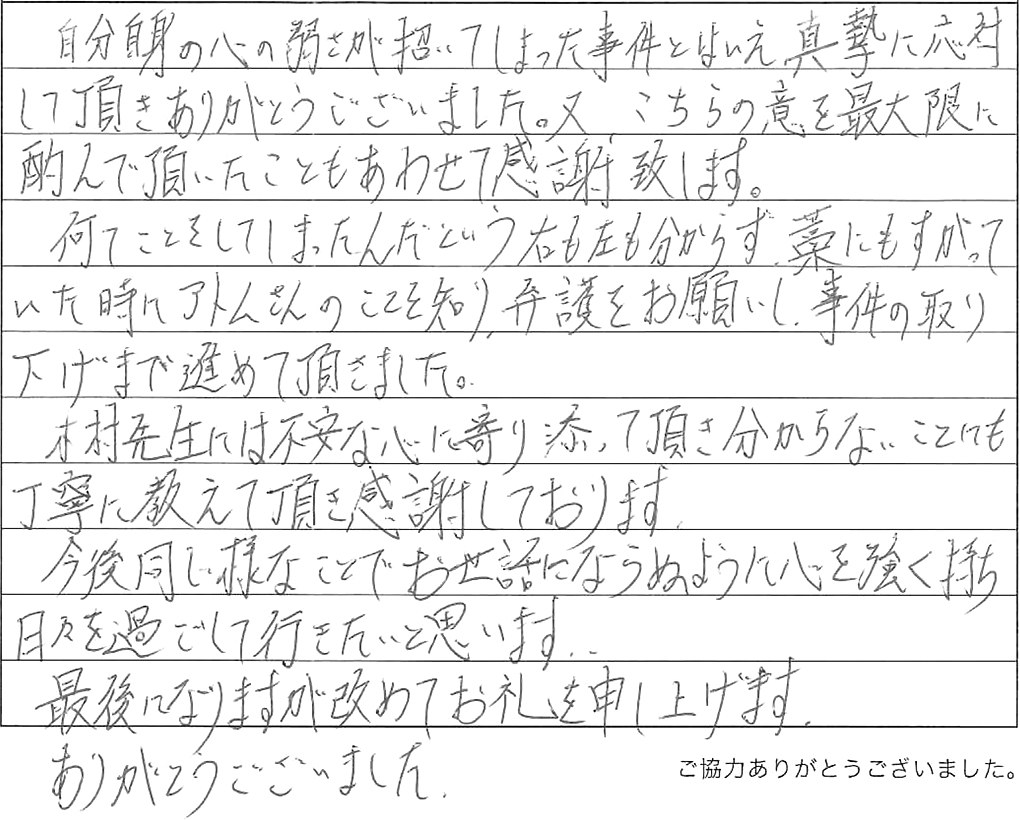 自分自身の心の弱さが招いてしまった事件とはいえ、真摯に応対
して頂きありがとうございました。又、こちらの意を最大限に
酌んで頂いたこともあわせて感謝致します。
何てことをしてしまったんだという右も左も分からず、藁にもすがって
いた時にアトムさんのことを知り、弁護をお願いし、事件の取り
下げまで進めて頂きました。
木村先生には不安な心に寄り添って頂き分からないことにも
丁寧に教えて頂き感謝しております。
今後同じ様なことでお世話にならぬように心を強く持ち
日々を過ごして行きたいと思います。
最後になりますが改めてお礼を申し上げます。
ありがとうございました。
ご協力ありがとうございました。